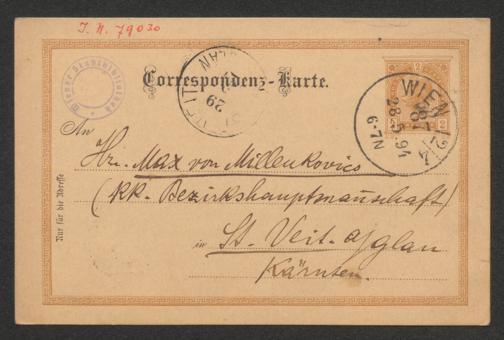 I. N. 79030
Correspondenz-Karte.
Wiener Stadtbibliothek
ST. VEIT
29
GLAN
2 2
WIEN 1/2
87
28.5.94
6-7N
An
Hrn. Max von Millenkovics
(KK. Bezirkshauptmannschaft)
in St. Veit a/glan
Kärnten.
Nur für die Adresse